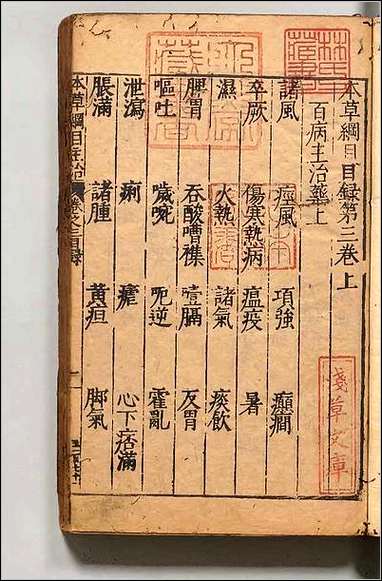 本草綱目目録第三卷上
百病主治藥上
諸風 痙風 項強 癲癇
卒厥 傷寒熱病 瘟疫 暑
濕 火熱 諸氣 痰飲
脾胃 吞酸嘈襍 噎膈 反胃
嘔吐 噦啘 呃逆 霍亂
泄瀉 痢 瘧 心下痞滿
脹滿 諸腫 黃疸 脚氣
本草綱目主治
淺草文庫